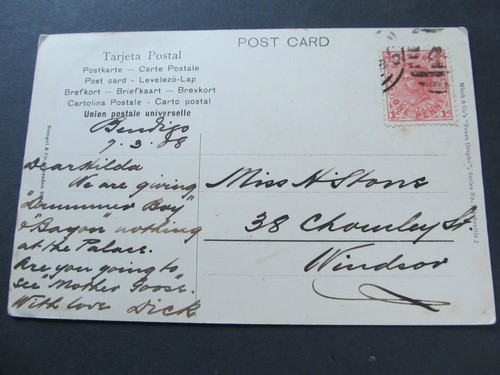 POST CARD
Tarjeta Postal
Postkarte — Carte Postale
Post card - Levelezö-Lap
Brefkort — Briefkaart — Brevkort
Cartolina Postale - Carto postal
Union postale universelle
Bendigo
7.3.08
Dear Hilda
We are giving
"Drummer Boy"
& nothing
at the Palace.
Are you going to
see "Mother Goose".
With love Dick
Miss H Stone
38 Chomley St.
Windsor